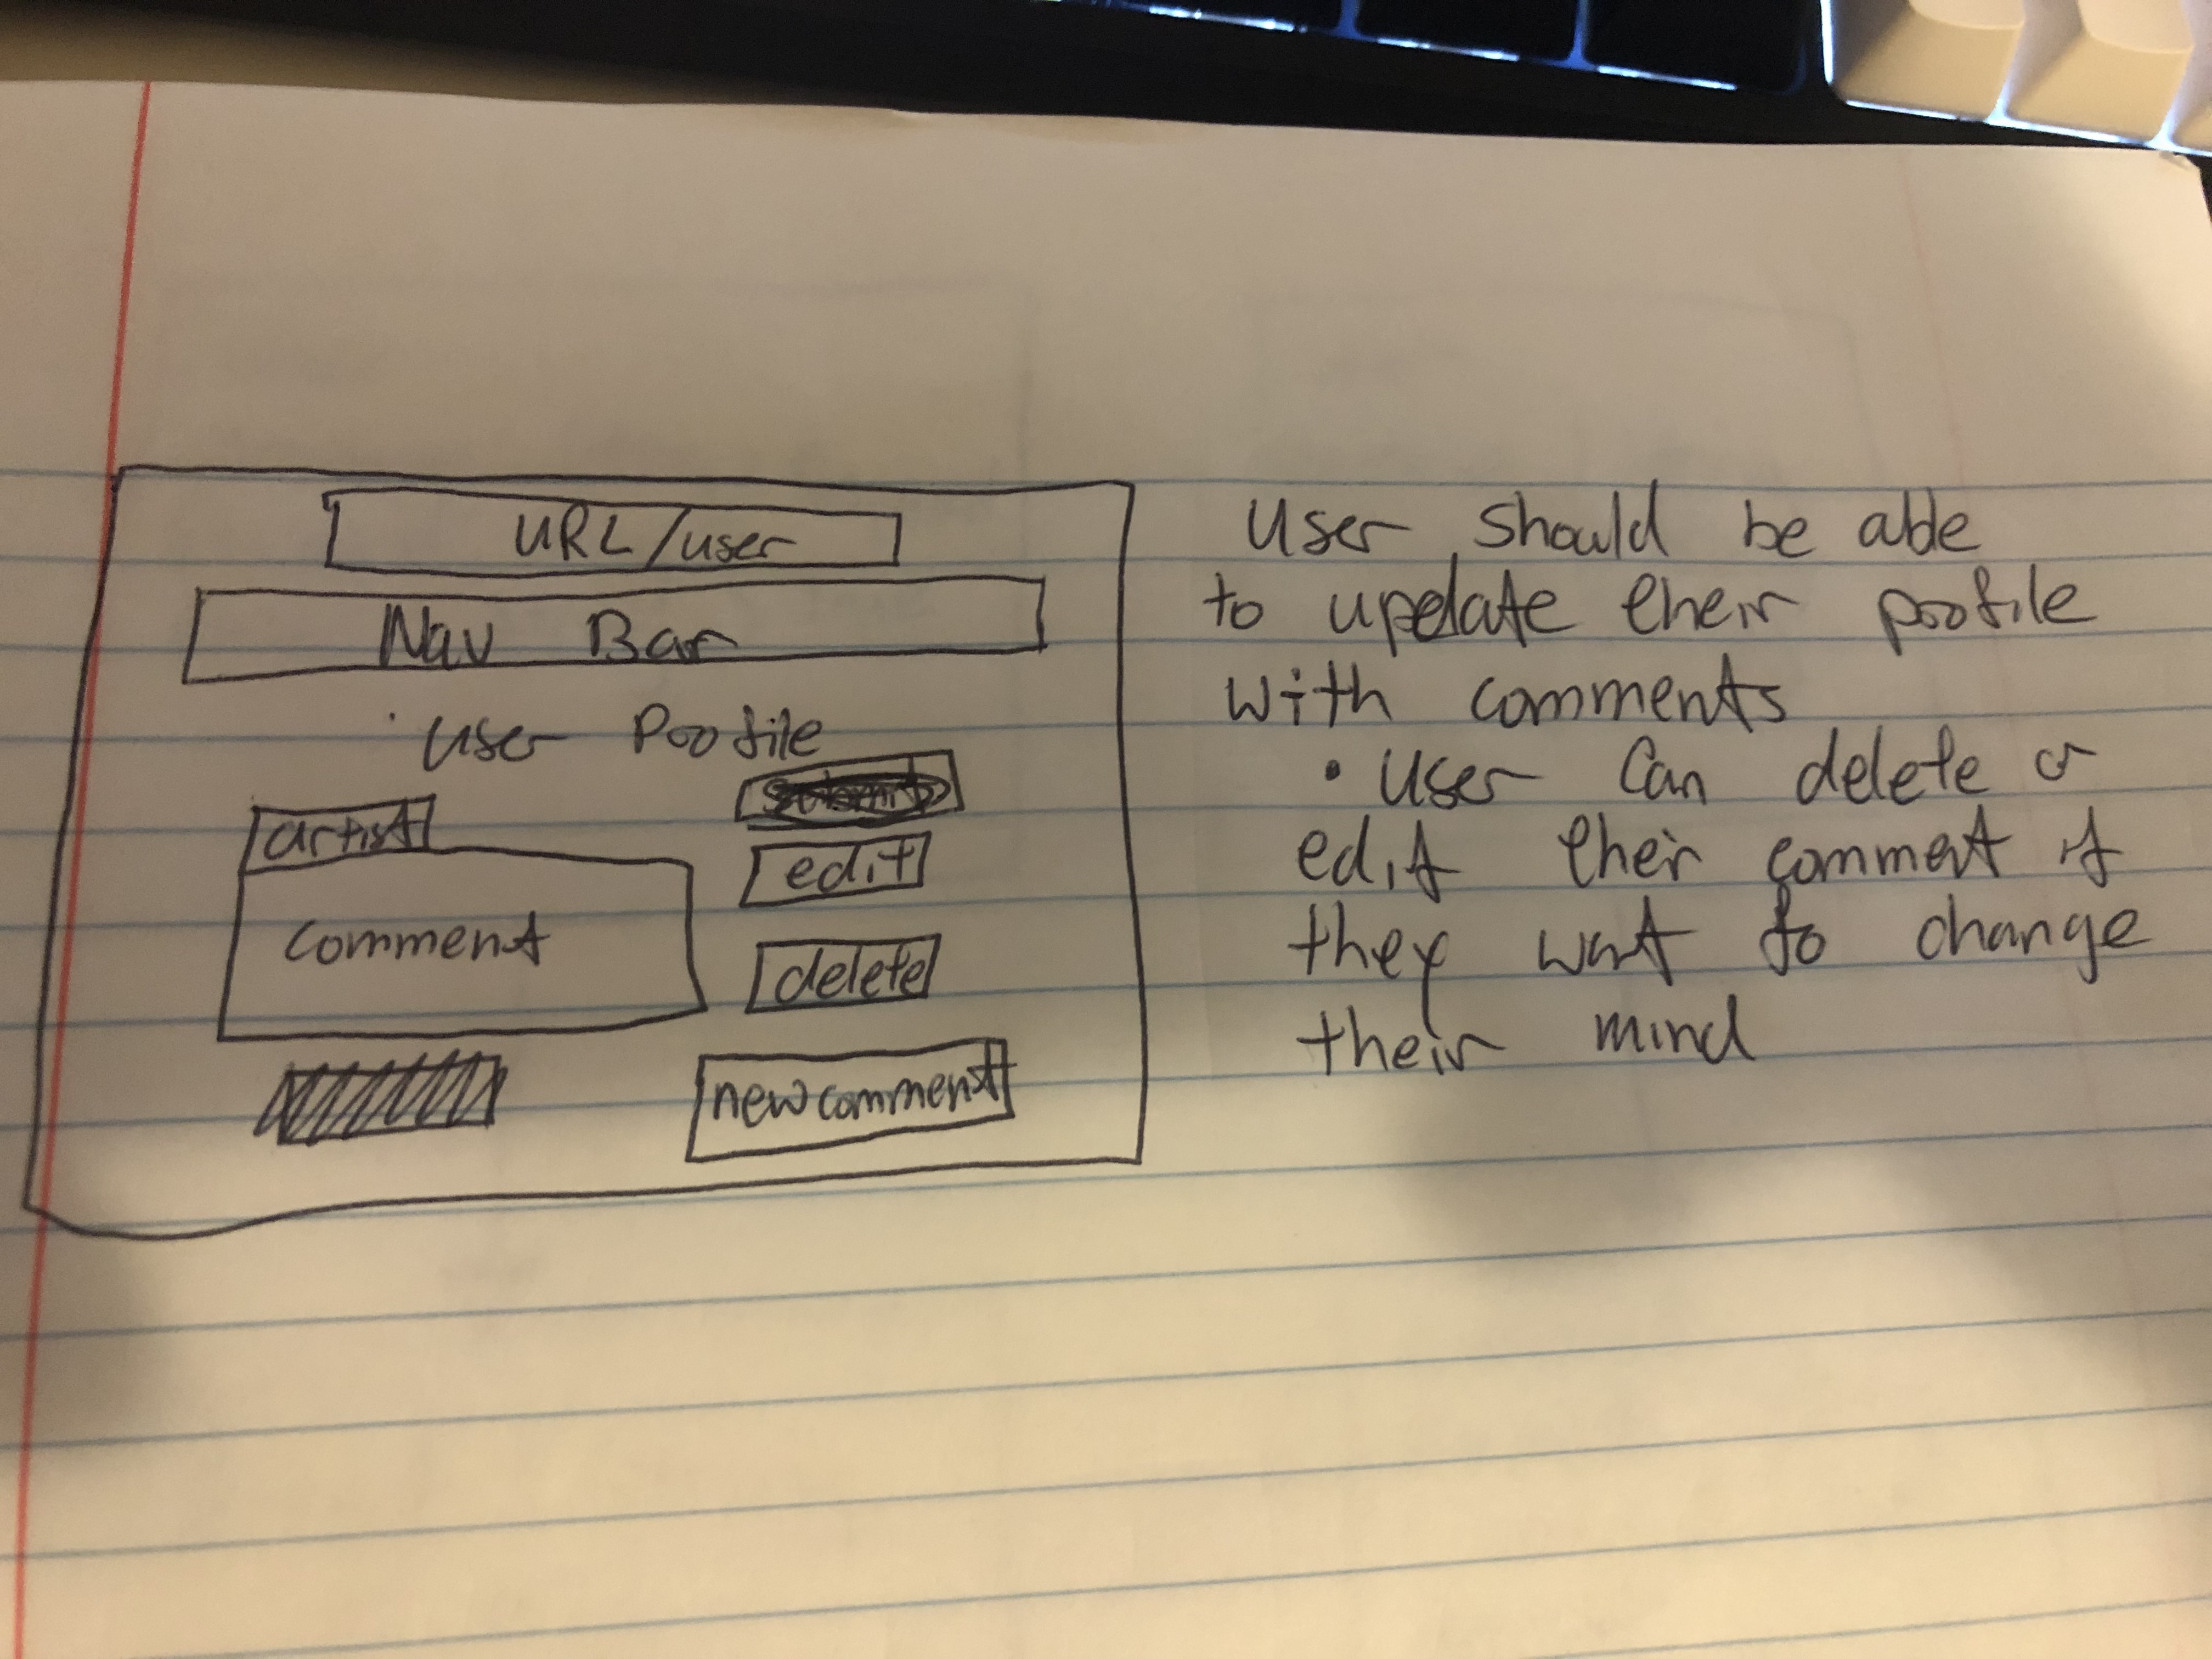 URL/user
Nav Bar
User Profile
artist
edit
comment
delete
new comment
User should be able
to update their profile
with comments
• User can delete or
edit their comment if
they want to change
their mind